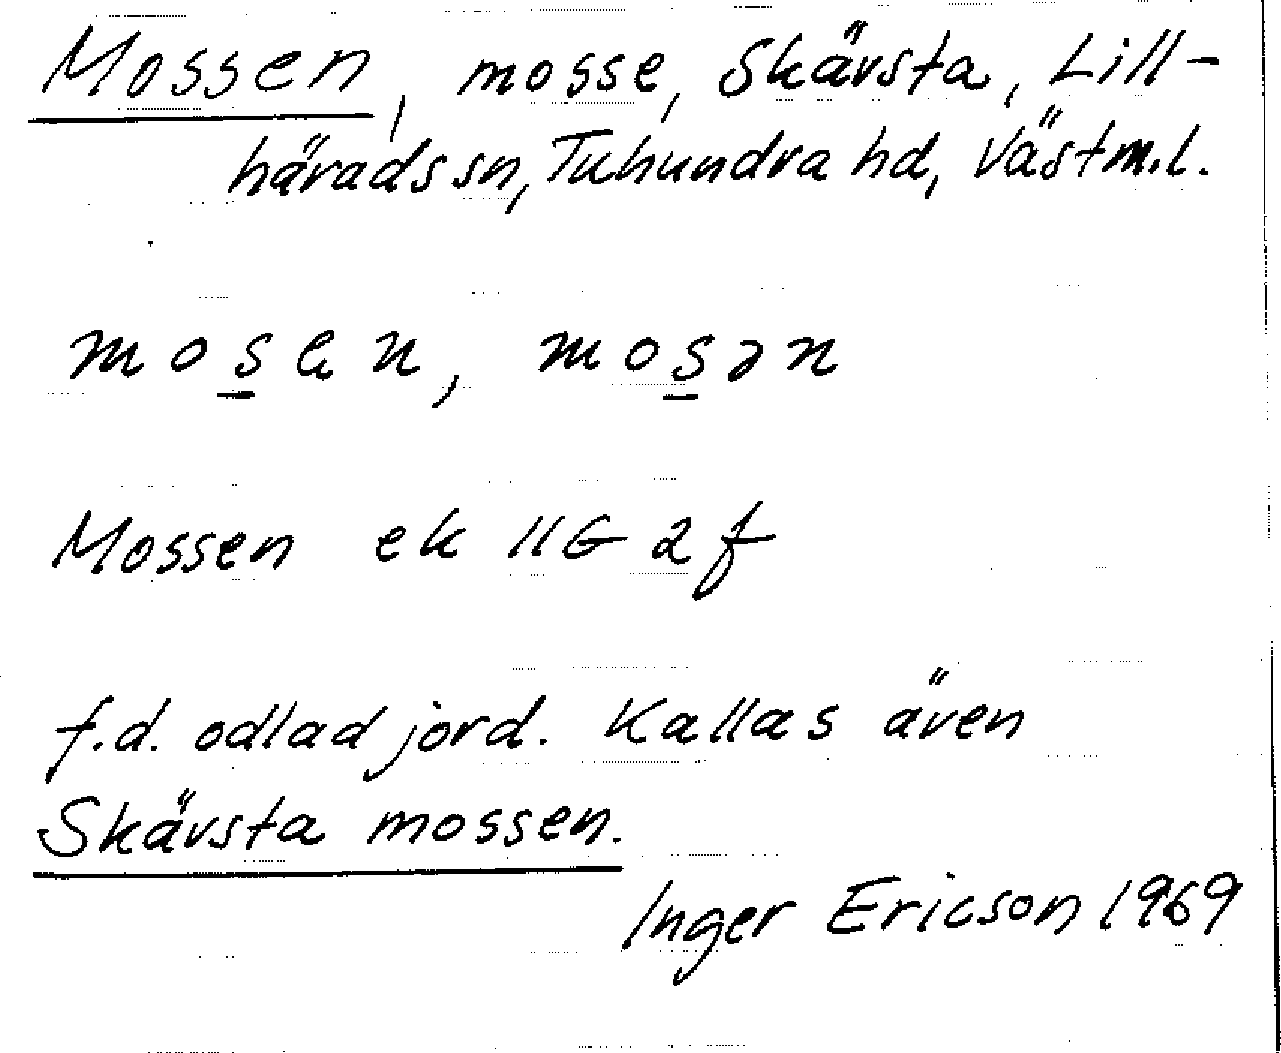 Mossen, mosse, Skävsta, Lill-
härads sn, Tuhundra hd, Västm.l.
mos̲en, mos̲ən
Mossen ek 11G 2f
f.d. odlad jord. Kallas även
Skävsta mossen.
Inger Ericson 1969